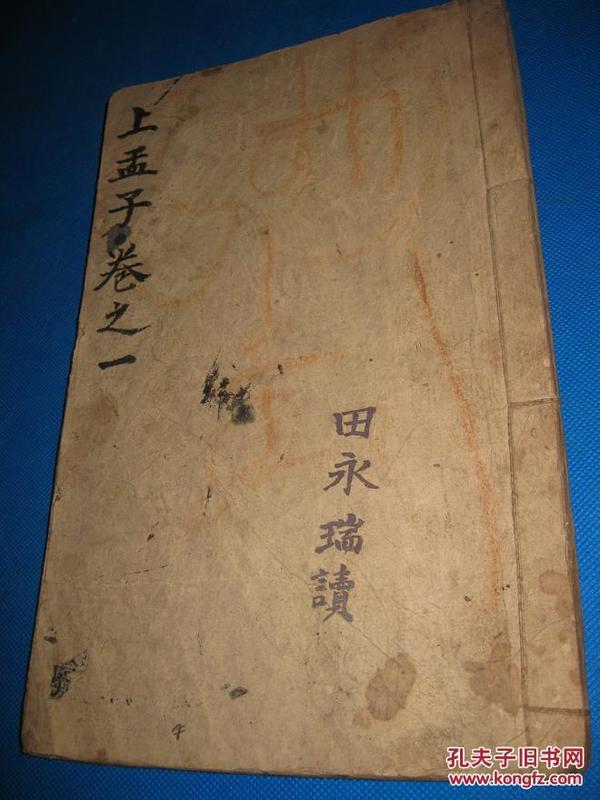 上孟子卷之一
田永瑞讀
孔夫子旧书网
www.kongfz.com